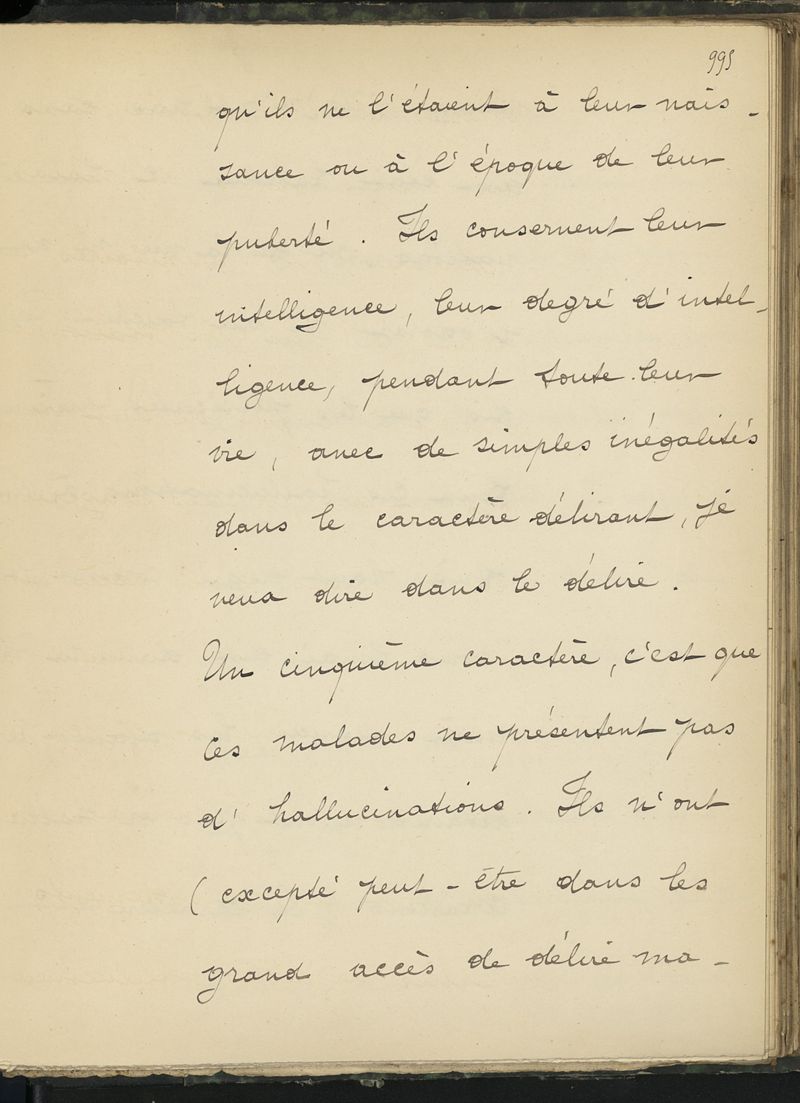 995
qu'ils ne l'étaient à leur nais-
sance ou à l'époque de leur
puberté. Ils conservent leur
intelligence, leur degré d'intel-
ligence, pendant toute leur
vie, avec de simples inégalités
dans le caractère délirant, je
veux dire dans le délire.
Un cinquième caractère, c'est que
ces malades ne présentent pas
d'hallucinations. Ils n'ont
(excepté peut-être dans les
grand accès de délire ma-